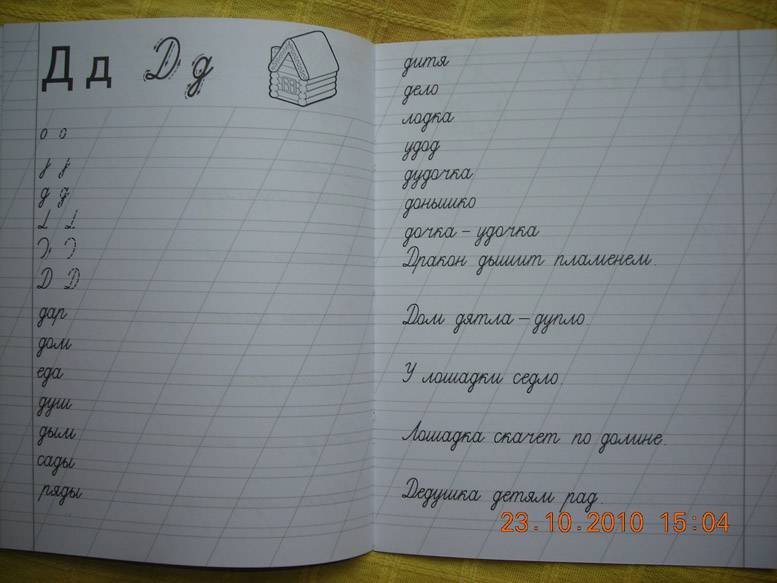 Д д Д д
о о
д д
д д
Д Д
дар
дом
еда
душ
дым
сады
ряды
дитя
дело
лодка
удод
дудочка
донышко
дочка – удочка
Дракон дышит пламенем.
Дом дятла – дупло.
У лошадки седло.
Лошадка скачет по долине.
Дедушка детям рад.
23.10.2010 15:04